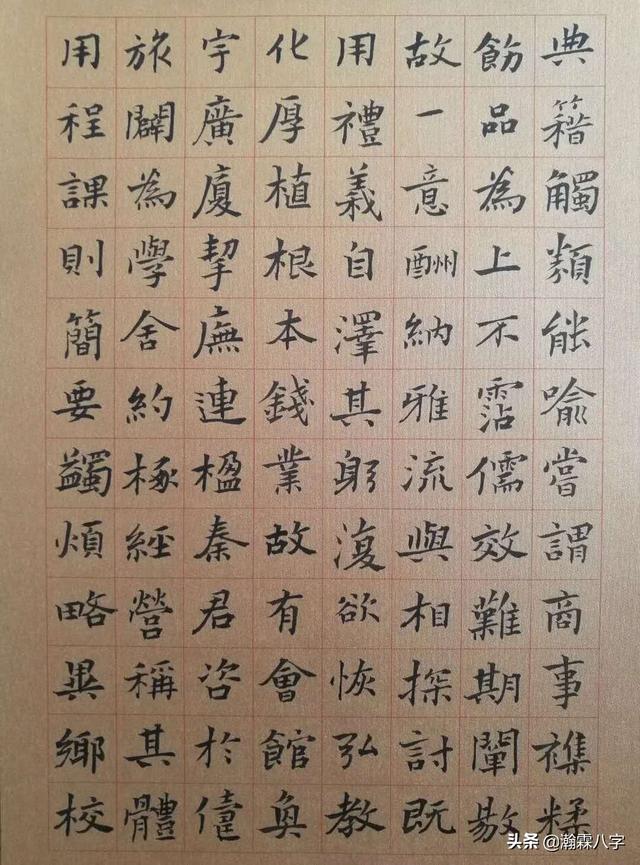 典籍觸類能喻嘗謂商事襍糅
飭品為上不霑儒效難期闡敭
故一意酬納雅流與相探討既
用禮義自澤其躬復欲恢弘教
化厚植根本錢業故有會館奐
宇廣廈挈廡連楹秦君咨於
旅闢為學舍約椓經營稱其體
用程課則簡要蠲煩略異鄉校
头条 @瀚霖八字